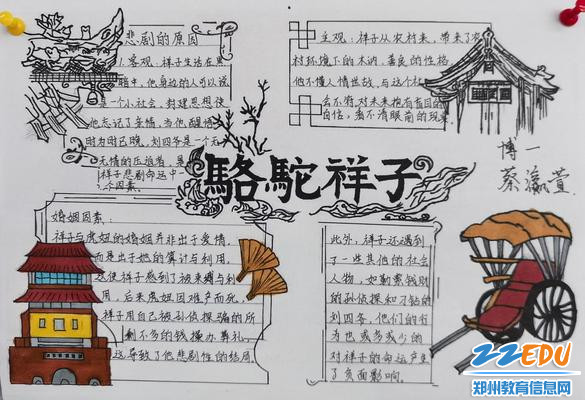 悲剧的原因
1.客观:祥子生活在黑
暗中,他身边的人可以说
是一个小社会,封建思想使
他忘记了亲情,当他醒悟
时为时已晚,刘四爷是一个无
无情的压迫者,是
祥子悲剧命运中一
个因素。
主观:祥子从农村来,带来了农
村环境下的木讷,善良的性格,
他不懂人情世故,与这个社
会不容,对未来抱有盲目的
自信,看不清眼前的现实
骆驼祥子
博一
蔡瀛萱
婚姻因素:
祥子与虎妞的婚姻并非出于爱情,
而是出于她的算计与利用,
这使祥子感到了被束缚与利
用,后来虎妞因难产而死,
祥子用自己被孙侦探骗的所
剩不多的钱操办葬礼,
这导致了他悲剧性的结局
此外,祥子还遇到
了一些其他的社会
人物,如勒索钱财
的孙侦探和刁钻的
刘四爷,他们的行
为也或多或少的
对祥子的命运产生
了负面影响。
ZZEDU
郑州教育信息网